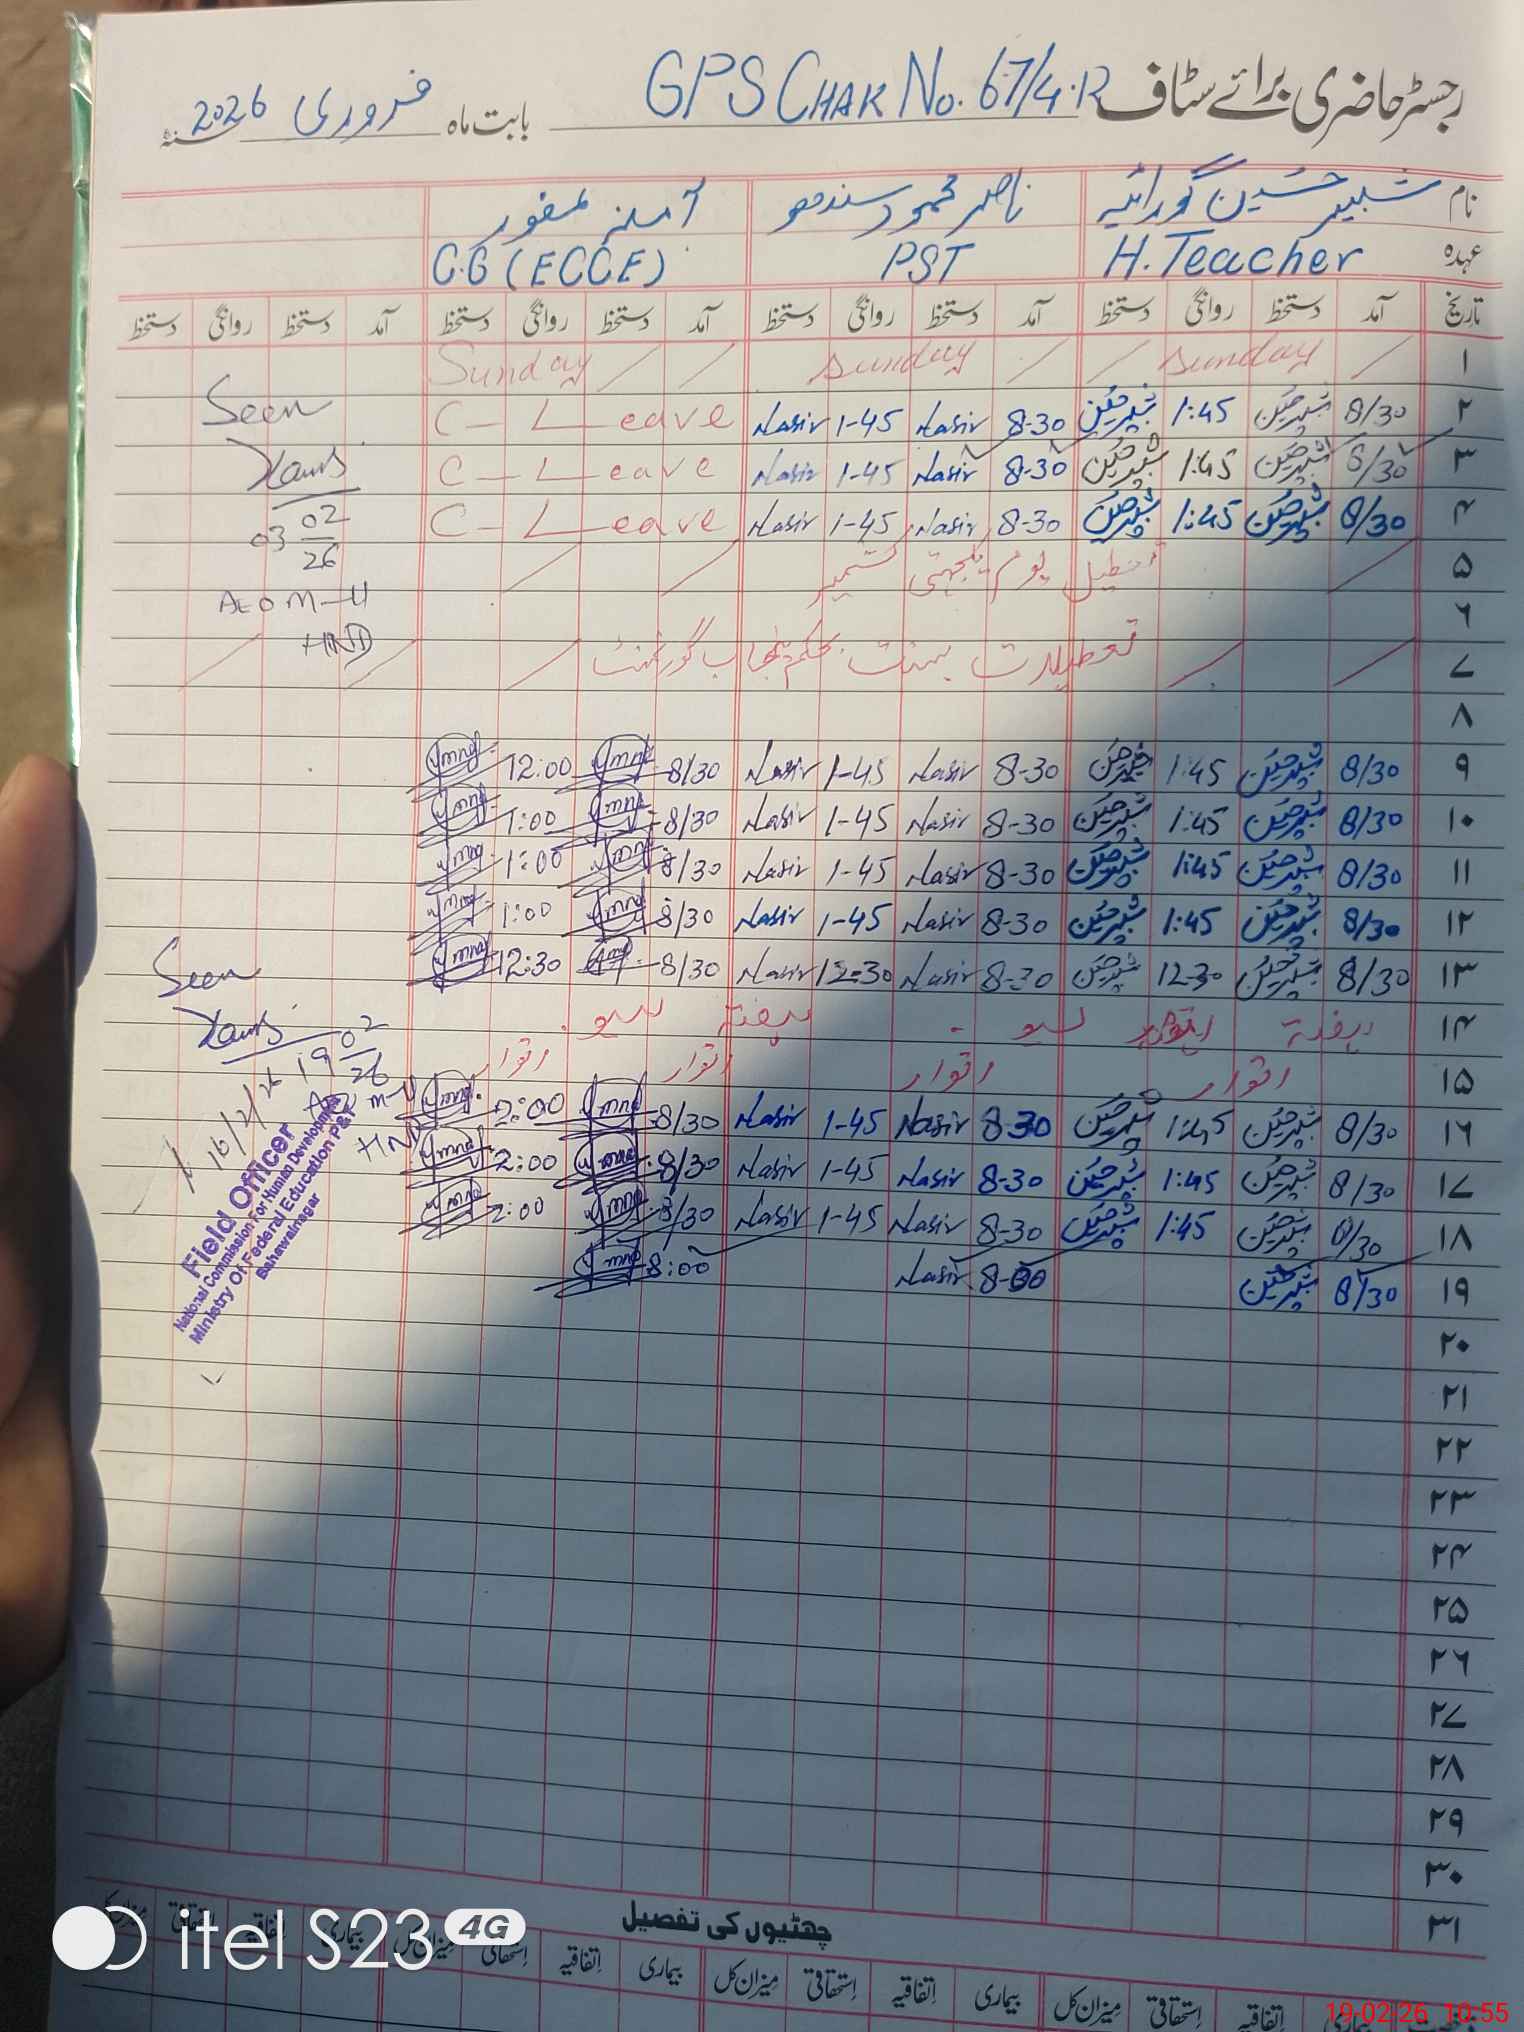 رجسٹر حاضری برائے سٹاف GPS CHAK No. 67/4.R بابت ماہ فروری 2026
نام شبیر حسین گورائیہ ناصر محمود سندھو آمنہ غفور
عہدہ H. Teacher PST C.G (ECCE)
تاریخ آمد دستخط روانگی دستخط آمد دستخط روانگی دستخط آمد دستخط روانگی دستخط آمد دستخط روانگی دستخط
۱ Sunday Sunday Sunday
۲ 8/30 شبیر حسین 1:45 شبیر حسین 8-30 Nasir 1-45 Nasir C-Leave
Seen
۳ 8/30 شبیر حسین 1:45 شبیر حسین 8-30 Nasir 1-45 Nasir C-Leave
۴ 8/30 شبیر حسین 1:45 شبیر حسین 8-30 Nasir 1-45 Nasir C-Leave
03 02/26
۵ تعطیل یوم یکجہتی کشمیر
AEO M-II
۶
HND
۷ تعطیلات بسنت بحکم پنجاب گورنمنٹ
۸
۹ 8/30 شبیر حسین 1:45 شبیر حسین 8-30 Nasir 1-45 Nasir 8/30 12:00
۱۰ 8/30 شبیر حسین 1:45 شبیر حسین 8-30 Nasir 1-45 Nasir 8/30 1:00
۱۱ 8/30 شبیر حسین 1:45 شبیر حسین 8-30 Nasir 1-45 Nasir 8/30 1:00
۱۲ 8/30 شبیر حسین 1:45 شبیر حسین 8-30 Nasir 1-45 Nasir 8/30 1:00
۱۳ 8/30 شبیر حسین 12-30 شبیر حسین 8-30 Nasir 12:30 Nasir 8/30 12:30
Seen
۱۴ ہفتہ
19 02/26
۱۵ اتوار اتوار اتوار اتوار
AEO M-II
HND
16/2/26
۱۶ 8/30 شبیر حسین 1:45 شبیر حسین 8-30 Nasir 1-45 Nasir 8/30 2:00
۱۷ 8/30 شبیر حسین 1:45 شبیر حسین 8-30 Nasir 1-45 Nasir 8/30 2:00
۱۸ 8/30 شبیر حسین 1:45 شبیر حسین 8-30 Nasir 1-45 Nasir 8/30 2:00
۱۹ 8/30 شبیر حسین 8-00 Nasir 8:00
Field Officer
National Commission For Human Development
Ministry Of Federal Education P&T
Bahawalnagar
۲۰
۲۱
۲۲
۲۳
۲۴
۲۵
۲۶
۲۷
۲۸
۲۹
۳۰
۳۱
چھٹیوں کی تفصیل
بیماری اتفاقیہ استحقاقی میزان کل بیماری اتفاقیہ استحقاقی میزان کل بیماری اتفاقیہ استحقاقی میزان کل بیماری اتفاقیہ استحقاقی میزان کل
itel S23 4G
19-02-26 10:55